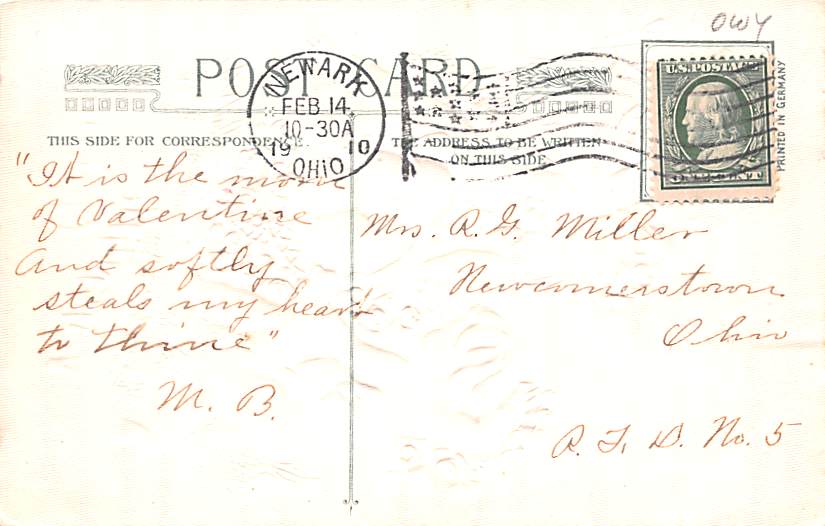 OWY
POST CARD
U.S. POSTAGE
PRINTED IN GERMANY
NEWARK
FEB 14
10-30A
1910
OHIO
THIS SIDE FOR CORRESPONDENCE.
THE ADDRESS TO BE WRITTEN
ON THIS SIDE.
"It is the morn
of Valentine
And softly
steals my heart
to thine"
M. B.
Mrs. R. G. Miller
Newcomerstown
Ohio
R. F. D. No. 5